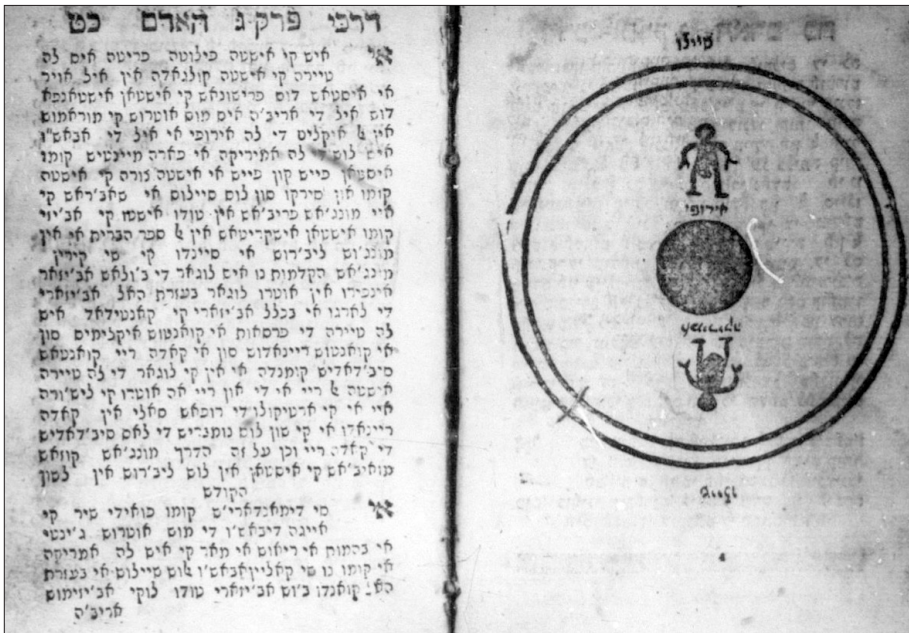 דרכי פרק ג האדם כט
אי איש קי אישטה פילוטה פריטה איס לה
טיירה קי אישטה קולגאדה אין איל אויר
אי איסטאש דוס פרישונאש קי אישטאן אישטאנפא
דוש איל די אריב'ה איס מוס אוטרוש קי מוראמוש
אין איקליס די לה אירופי אי איל די אבאש"ו
איש לוש די לה אמיריקה אי פארה מיינטיש קומו
איסטאן פייש קון פייש אי אישטה גורה קי אישטה
קומו און סירקו סון לוס סיילוס אי שאב'ראש קי
איי מונג'אש פריב'אש אין טודו אישטו קי אב'יזי
קומו אישטאן אישקריטאש אין ספר הברית אי אין
מונג'וש ליב'רוש אי סיינדו קי שי קירין
מונג'אש הקדמות נו איש לוגאר די ב'ולאש אב'יזאר
אינפירו אין אוטרו לוגאר בעזרת האל אב'יזארי
די לארגו אי בכלל אב'יזארי קי קאנטידאד איש
לה טיירה די פרסאות אי קואנטוש איקלימיס סון
אי קואנטוש ריינאדוש סון אי קאדה ריי קואנטאש
סיב'דאדיש קומנדה אי אין קי לוגאר די לה טיירה
אישטה ריי אי די און ריי אה אוטרו קי ליש'ורה
איי אי קי ארטיקולו די רופאש סאלי אין קאדה
ריינאדו אי קי סון לוש נומברדיש די לאס סיב'דאדיש
די קאדה ריי וכן על זה הדרך מונג'אש קוזאש
מואיב'אש קי איסטאן אין לוש ליב'רוש אין לשון
הקודש
אי סי דימאנדארי"ש קומו פואידי שיר קי
אייגה דיבאש'ו די מוס אוטרוס ג'ינטי
אי בהמות אי ריאוש אי מאר קי איש לה אמריקה
אי קומו נו שי קאליין אבאש'ו לוש סיילוש אי בעזרת
האל קואנדו ב'וש אב'יזארי טודו לוקי אב'יזימוש
אריב'ה
סיילו
אירופי
אמיריקה
סיילו